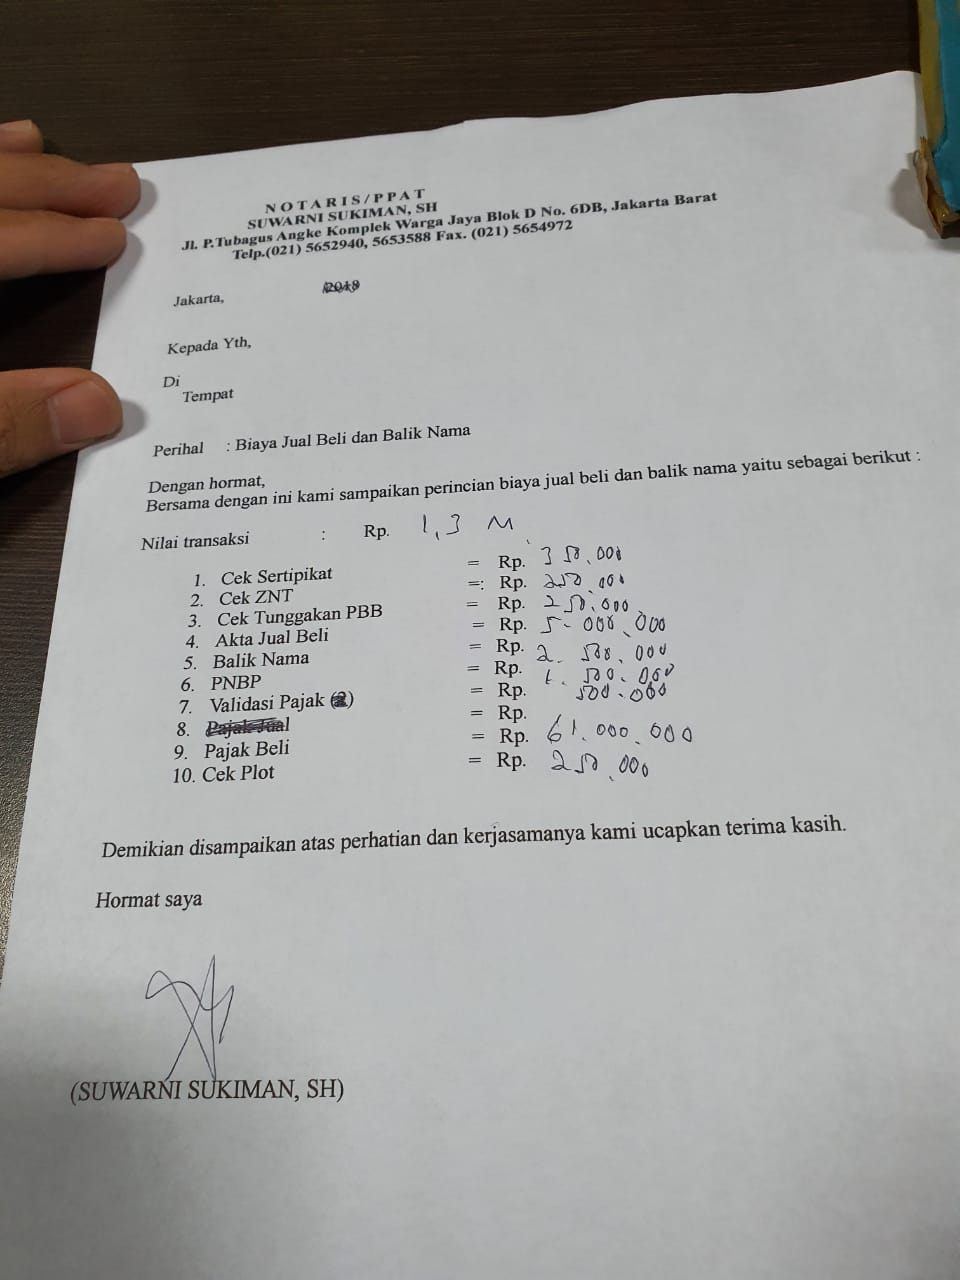 NOTARIS/PPAT
SUWARNI SUKIMAN, SH
Jl. P.Tubagus Angke Komplek Warga Jaya Blok D No. 6DB, Jakarta Barat
Telp.(021) 5652940, 5653588 Fax. (021) 5654972
Jakarta, 2018
Kepada Yth,
Di
Tempat
Perihal : Biaya Jual Beli dan Balik Nama
Dengan hormat,
Bersama dengan ini kami sampaikan perincian biaya jual beli dan balik nama yaitu sebagai berikut :
Nilai transaksi : Rp. 1,3 M
1. Cek Sertipikat = Rp. 350.000
2. Cek ZNT =: Rp. 250.000
3. Cek Tunggakan PBB = Rp. 250.000
4. Akta Jual Beli = Rp. 5.000.000
5. Balik Nama = Rp. 2.500.000
6. PNBP = Rp. 1.500.000
7. Validasi Pajak (2) = Rp. 500.000
8. Pajak Jual = Rp.
9. Pajak Beli = Rp. 61.000.000
10. Cek Plot = Rp. 250.000
Demikian disampaikan atas perhatian dan kerjasamanya kami ucapkan terima kasih.
Hormat saya
(SUWARNI SUKIMAN, SH)